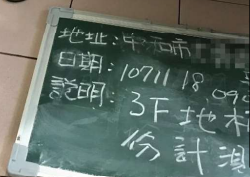 地址:中和市
日期:10711 18.09
說明:3F地
份計